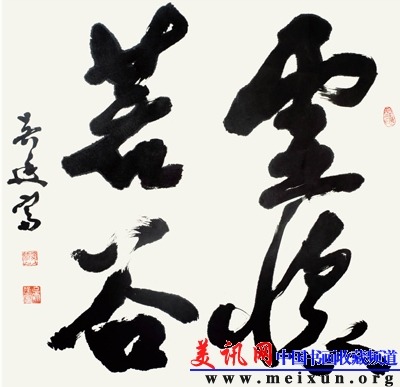 虚懷
若谷
美讯网 中国书画收藏频道
www.meixun.org